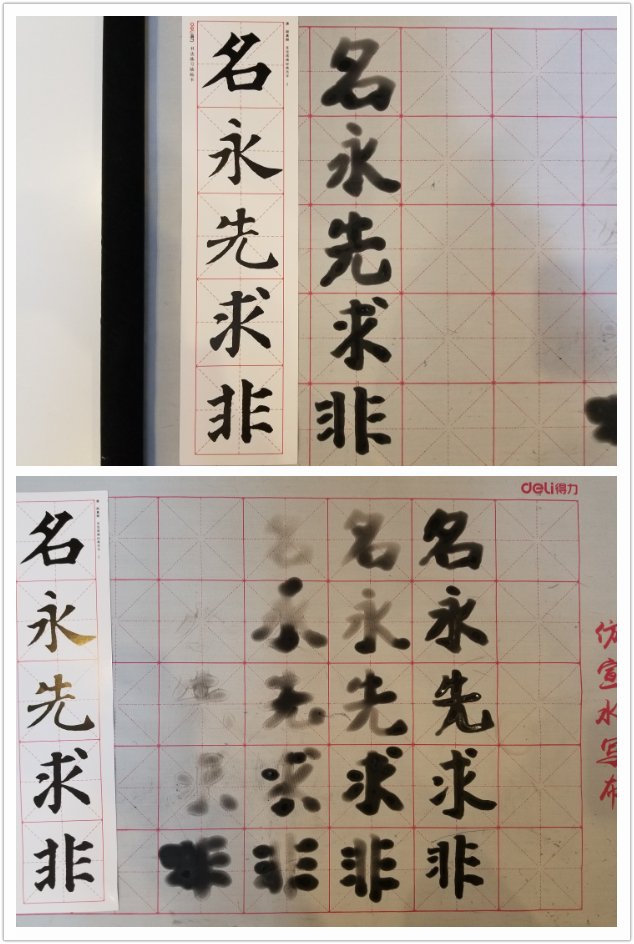 名永先求非
名永先求非
deli得力
名永先求非
永先求非
名永先求非
名永先求非
仿宣水写布